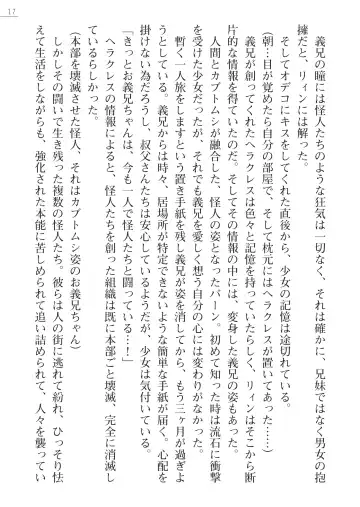 17
義兄の瞳には怪人たちのような狂気は一切なく、それは確かに、兄妹ではなく男女の抱
擁だと、リィンには解った。
そしてオデコにキスをしてくれた直後から、少女の記憶は途切れている。
(朝…目が覚めたら自分の部屋で、そして枕元にはヘラクレスが置いてあった……)
義兄が創ってくれたヘラクレスは色々と記憶を持っていたらしく、リィンはそこから断
片的な情報を得ていたのだ。そしてその情報の中には、変身した義兄の姿もあった。
人間とカブトムシが融合した、怪人の姿となったバーン。初めて知った時は流石に衝撃
を受けた少女だったが、それでも義兄を愛しく想う自分の心には変わりがなかった。
暫く一人旅をしますという置き手紙を残して義兄が姿を消してから、もう三ヶ月が過ぎよ
うとしている。義兄からは時々、居場所が特定できないような簡単な手紙が届く。心配を
掛けない為だろうし、叔父さんたちは安心しているようだが、少女は気付いている。
「きっとお義兄ちゃんは、今も一人で怪人たちと闘っている…!」
ヘラクレスの情報によると、怪人たちを創った組織は既に本部ごと壊滅、完全に消滅し
ているらしかった。
(本部を壊滅させた怪人、それはカブトムシ姿のお義兄ちゃん)
しかしその闘いで生き残った複数の怪人たち。彼らは人の街に逃れて紛れ、ひっそり怯
えて生活をしながらも、強化された本能に苦しめられて追い詰められて、人々を襲ってい